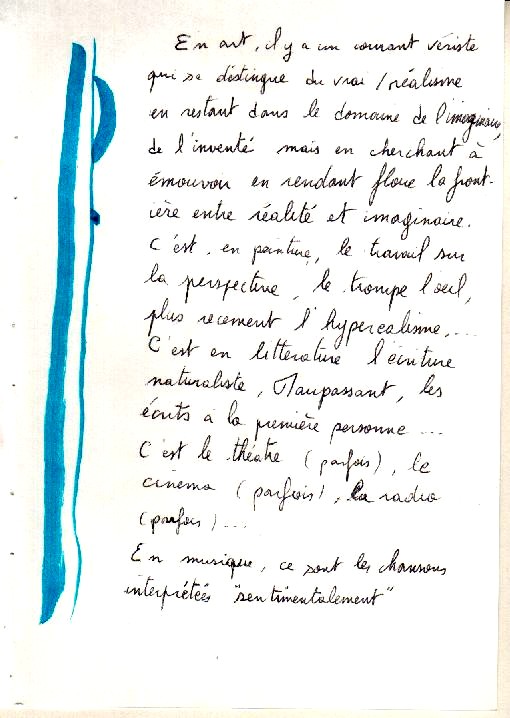 En art, il y a un courant vériste
qui se distingue du vrai / réalisme
en restant dans le domaine de l'imaginaire,
de l'inventé mais en cherchant à
émouvoir en rendant floue la front-
ière entre réalité et imaginaire.
C'est, en peinture, le travail sur
la perspective, le trompe l'oeil,
plus recement l'hyperealisme,...
C'est en littérature l'écriture
naturaliste, Maupassant, les
écrits à la première personne ...
C'est le théâtre (parfois), le
cinema (parfois), la radio
(parfois)...
En musique, ce sont les chansons
interprétées "sentimentalement"